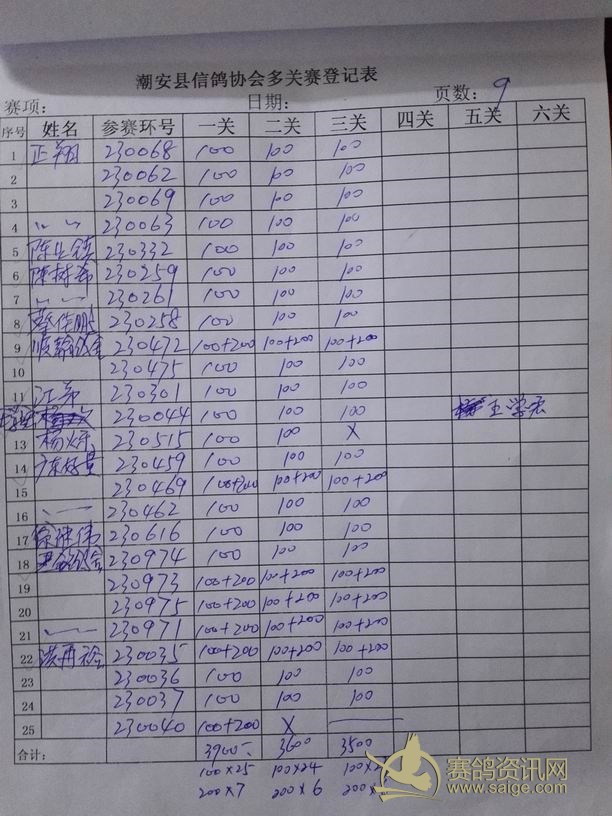 潮安县信鸽协会多关赛登记表
赛项: 日期: 页数: 9
序号 姓名 参赛环号 一关 二关 三关 四关 五关 六关
1 正翔 230068 100 100 100
2 230062 100 100 100
3 230069 100 100 100
4 〃 〃 230063 100 100 100
5 230332 100 100 100
6 陈树希 230259 100 100 100
7 〃 〃 230261 100 100 100
8 230258 100 100 100
9 230472 100+200 100+200 100+200
10 230475 100 100 100
11 江弟 230301 100 100 100
230044 100 100 100 王学宏
13 230515 100 100 X
14 230459 100 100 100
15 230469 100+200 100+200 100+200
16 230462 100 100 100
17 230616 100 100 100
18 230974 100 100 100
19 230973 100+200 100+200 100+200
20 230975 100+200 100+200 100+200
21 230971 100+200 100+200 100+200
22 230035 100+200 100+200 100+200
23 230036 100 100 100
24 230037 100 100 100
25 230040 100+200 X
合计: 3900 3600 3500
100×25 100×24
200×7 200×6
赛鸽资讯网
www.saige.com